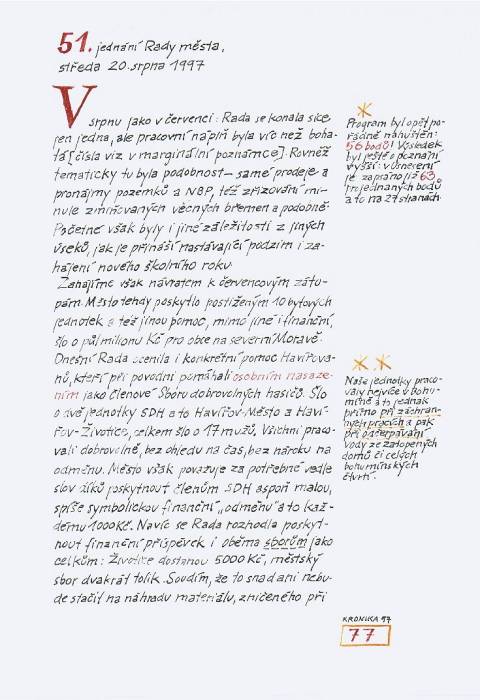 51. jednání Rady města,
středa 20. srpna 1997
V srpnu jako v červenci: Rada se konala sice
jen jedna, ale pracovní náplň byla víc než boha-
tá [čísla viz v marginální poznámce]. Rovněž
tematicky tu byla podobnost – samé prodeje a
pronájmy pozemků a NBP, též zřizování mi-
nule zmiňovaných věcných břemen a podobně.
Početné však byly i jiné záležitosti z jiných
úseků, jak je přináší nastávající podzim i za-
hájení nového školního roku.
Zahajme však návratem k červencovým záto-
pám. Město tehdy poskytlo postiženým 10 bytových
jednotek a též jinou pomoc, mimo jiné i finanční,
šlo o půl milionu Kč pro obce na severní Moravě.
Dnešní Rada ocenila i konkrétní pomoc Havířova-
nů, kteří při povodni pomáhali osobním nasaze-
ním jako členové Sboru dobrovolných hasičů. Šlo
o dvě jednotky SDH a to Havířov-Město a Haví-
řov-Životice, celkem šlo o 17 mužů. Všichni praco-
vali dobrovolně, bez ohledu na čas, bez nároku na
odměnu. Město však považuje za potřebné vedle
slov díků poskytnout členům SDH aspoň malou,
spíše symbolickou finanční „odměnu" a to kaž-
dému 1000 Kč. Navíc se Rada rozhodla poskyt-
nout finanční příspěvek i oběma sborům jako
celkům: Životice dostanou 5000 Kč, městský
sbor dvakrát tolik. Soudím, že to snad ani nebu-
de stačit na náhradu materiálu, zničeného při
*
Program byl opět po-
řádně nahuštěn:
56 bodů! Výsledek
byl ještě o poznání
vyšší: v usnesení
je zapsáno již 63
projednaných bodů
a to na 27 stranách.
* *
Naše jednotky praco-
valy nejvíce v Bohu-
míně a to jednak
přímo při záchran-
ných pracích a pak
při odčerpávání
vody ze zatopených
domů či celých
bohumínských
čtvrtí.
KRONIKA 97
77